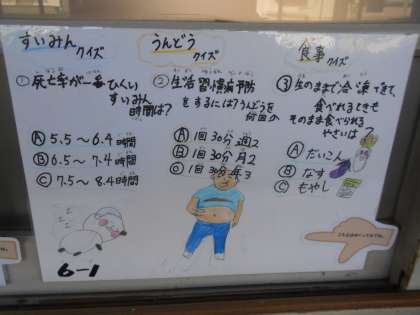 すいみん
クイズ
①死亡率が一番ひくい
すいみん
時間は?
Ⓐ5.5～6.4時間
Ⓑ6.5～7.4時間
Ⓒ7.5～8.4時間
6-1
うんどう
クイズ
②生活習慣病予防
をするには?うんどうを
何回か
Ⓐ1回30分週2
Ⓑ1回30分月2
Ⓒ1回30分年3
食事クイズ
③生のままで冷凍できて、
食べれるときも
そのまま食べられる
やさいは?
Ⓐだいこん
Ⓑなす
Ⓒもやし